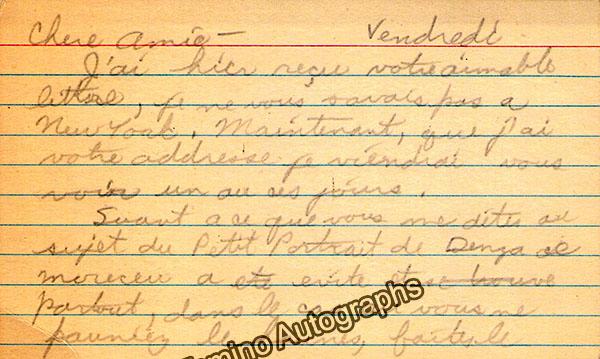 Chere Amie – Vendredi
J'ai hier reçu votre aimable
lettre, je ne vous savais pas a
New York. Maintenant, que j'ai
votre addresse je viendrai vous
voir un au ces jours.
Suant a ce que vous me dites au
sujet du Petit Portrait de Denza ce
morceeu a ete evite et se trouve
partout, dans le vous ne
le
Tamino Autographs